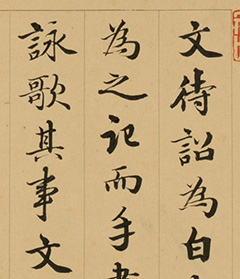 文待詔為白
為之記而手書
詠歌其事文